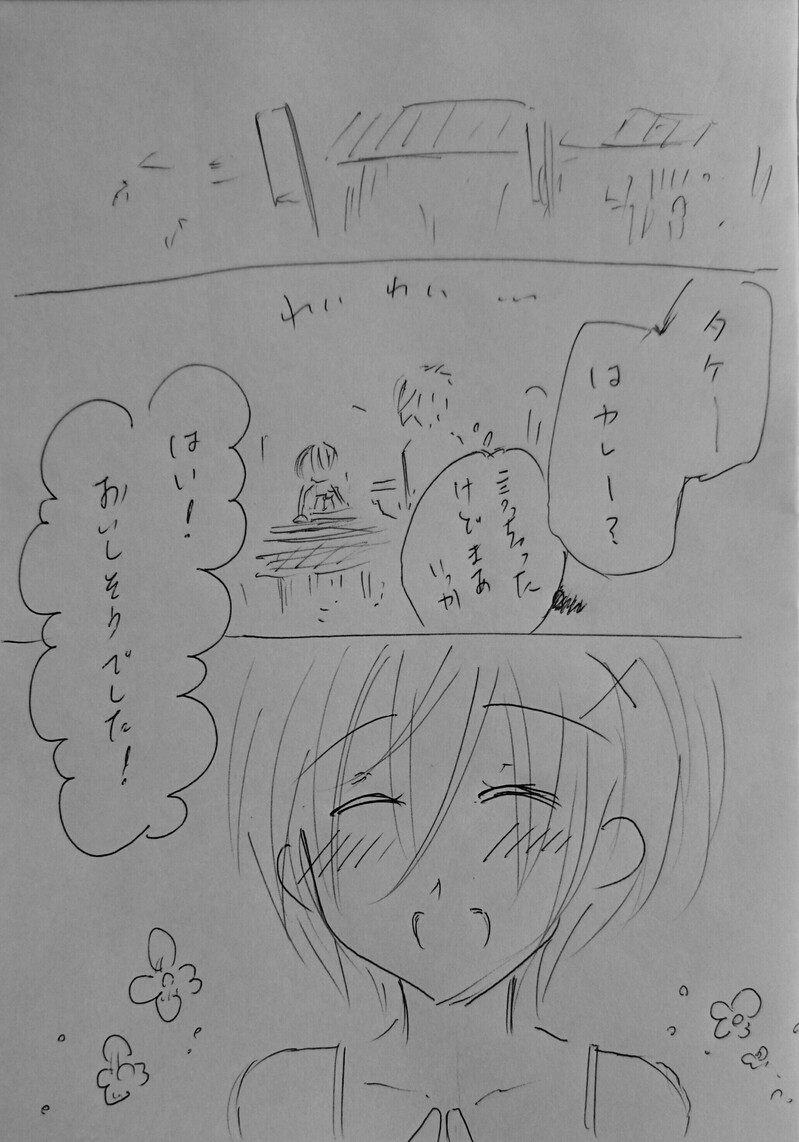 わいわい…
タケー
はカレー？
言っちゃった
けどまあ
いっか
はい！
おいしそうでした！